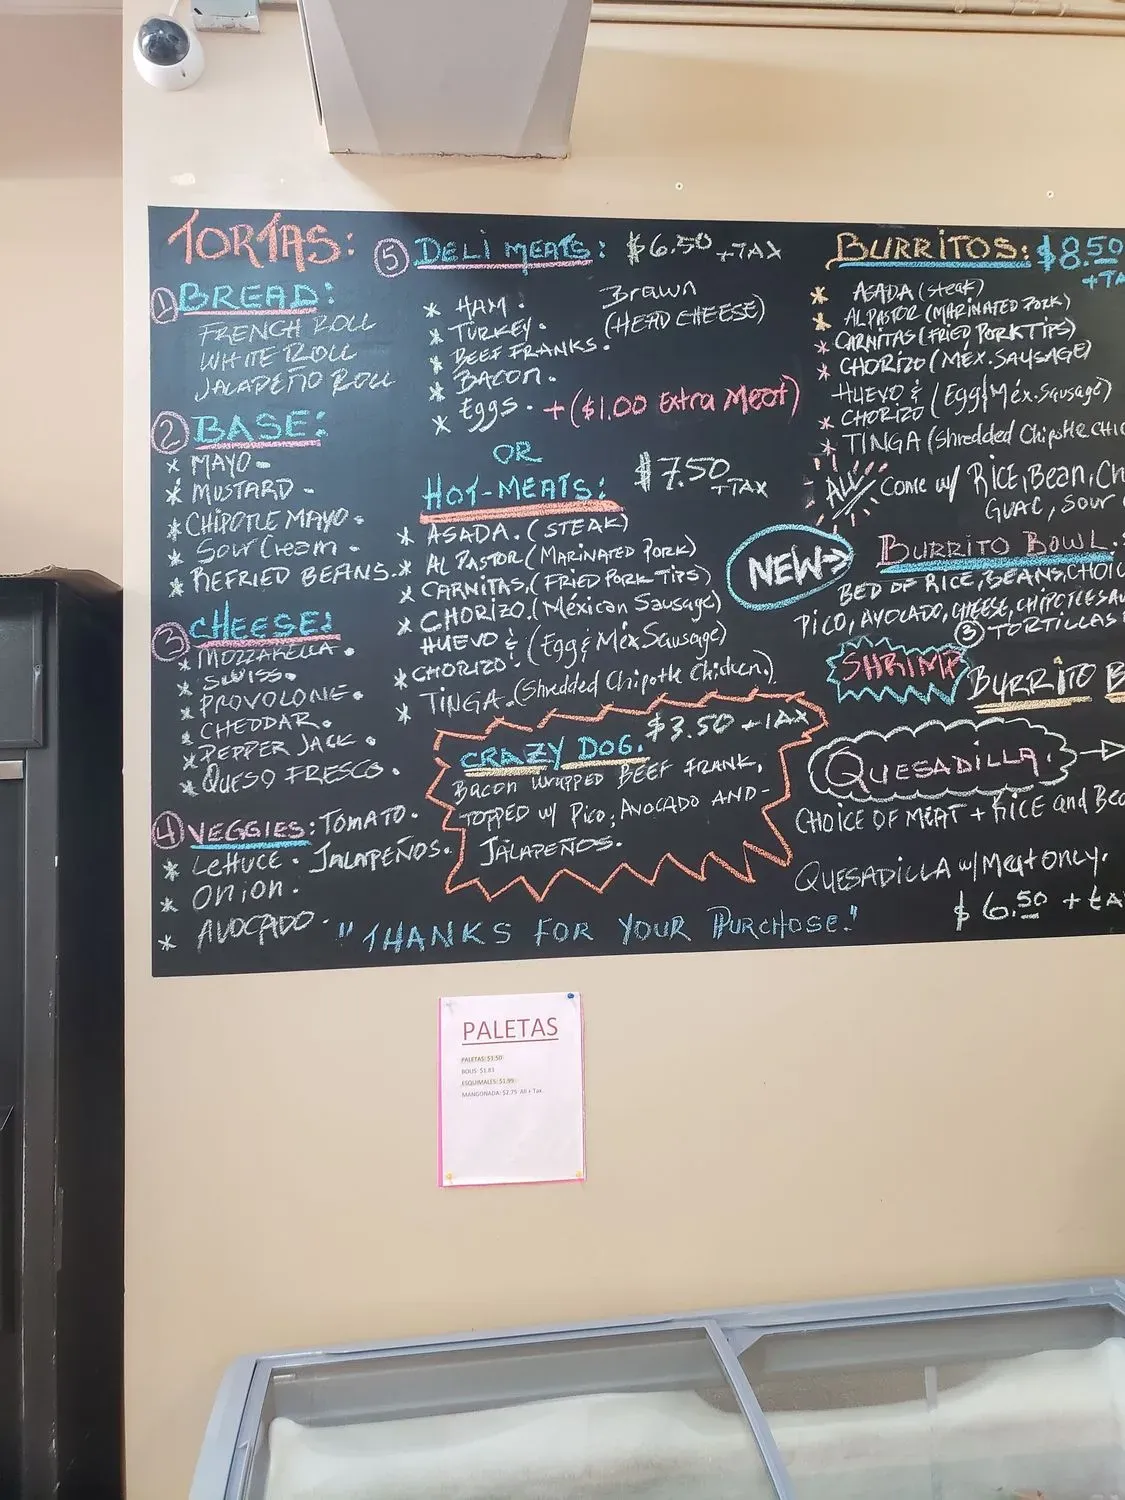 TORTAS:
① BREAD:
FRENCH ROLL
WHITE ROLL
JALAPEÑO ROLL
② BASE:
* MAYO -
* MUSTARD -
* CHIPOTLE MAYO.
* Sour Cream -
* REFRIED BEANS.
③ CHEESE:
* MOZZARELLA.
* SWISS.
* PROVOLONE.
* CHEDDAR.
* PEPPER JACK.
* QUESO FRESCO.
④ VEGGIES: TOMATO.
* LETTUCE. JALAPEÑOS.
* ONION.
* AVOCADO.
⑤ DELI MEATS: $6.50 +TAX
* HAM.
* TURKEY.
* BEEF FRANKS.
* BACON.
* Eggs.
Brawn
(HEAD CHEESE)
+ ($1.00 Extra Meat)
OR
HOT-MEATS: $7.50 +TAX
* ASADA. (STEAK)
* AL PASTOR (MARINATED PORK)
* CARNITAS. (FRIED PORK TIPS)
* CHORIZO. (Méxican Sausage)
HUEVO & (Egg & Méx Sausage)
* CHORIZO.
* TINGA. (Shredded Chipotle Chicken.)
$3.50 +TAX
CRAZY DOG.
Bacon Wrapped BEEF FRANK,
TOPPED w/ Pico, AVOCADO AND-
JALAPEÑOS.
"THANKS FOR YOUR PURCHOSE!"
BURRITOS: $8.50
* ASADA (Steak)
* AL PASTOR (MARINATED PORK)
* CARNITAS (FRIED PORK TIPS)
* CHORIZO (MÉX. SAUSAGE)
HUEVO & (Egg Méx. Sausage)
* CHORIZO
* TINGA (Shredded Chipotle
ALL Come w/ RICE, Bean,
GUAC, SOUR
NEW→
BURRITO BOWL.
BED OF RICE, BEANS,
PICO, AVOCADO, CHEESE,
③ TORTILLAS
SHRIMP BURRITO
QUESADILLA.
CHOICE OF MEAT + RICE and
QUESADILLA w/ Meat only.
$6.50 +
PALETAS
PALETAS: $1.50
BOLIS: $1.83
ESQUIMALES: $1.99
MANGONADA: $2.75 All + Tax